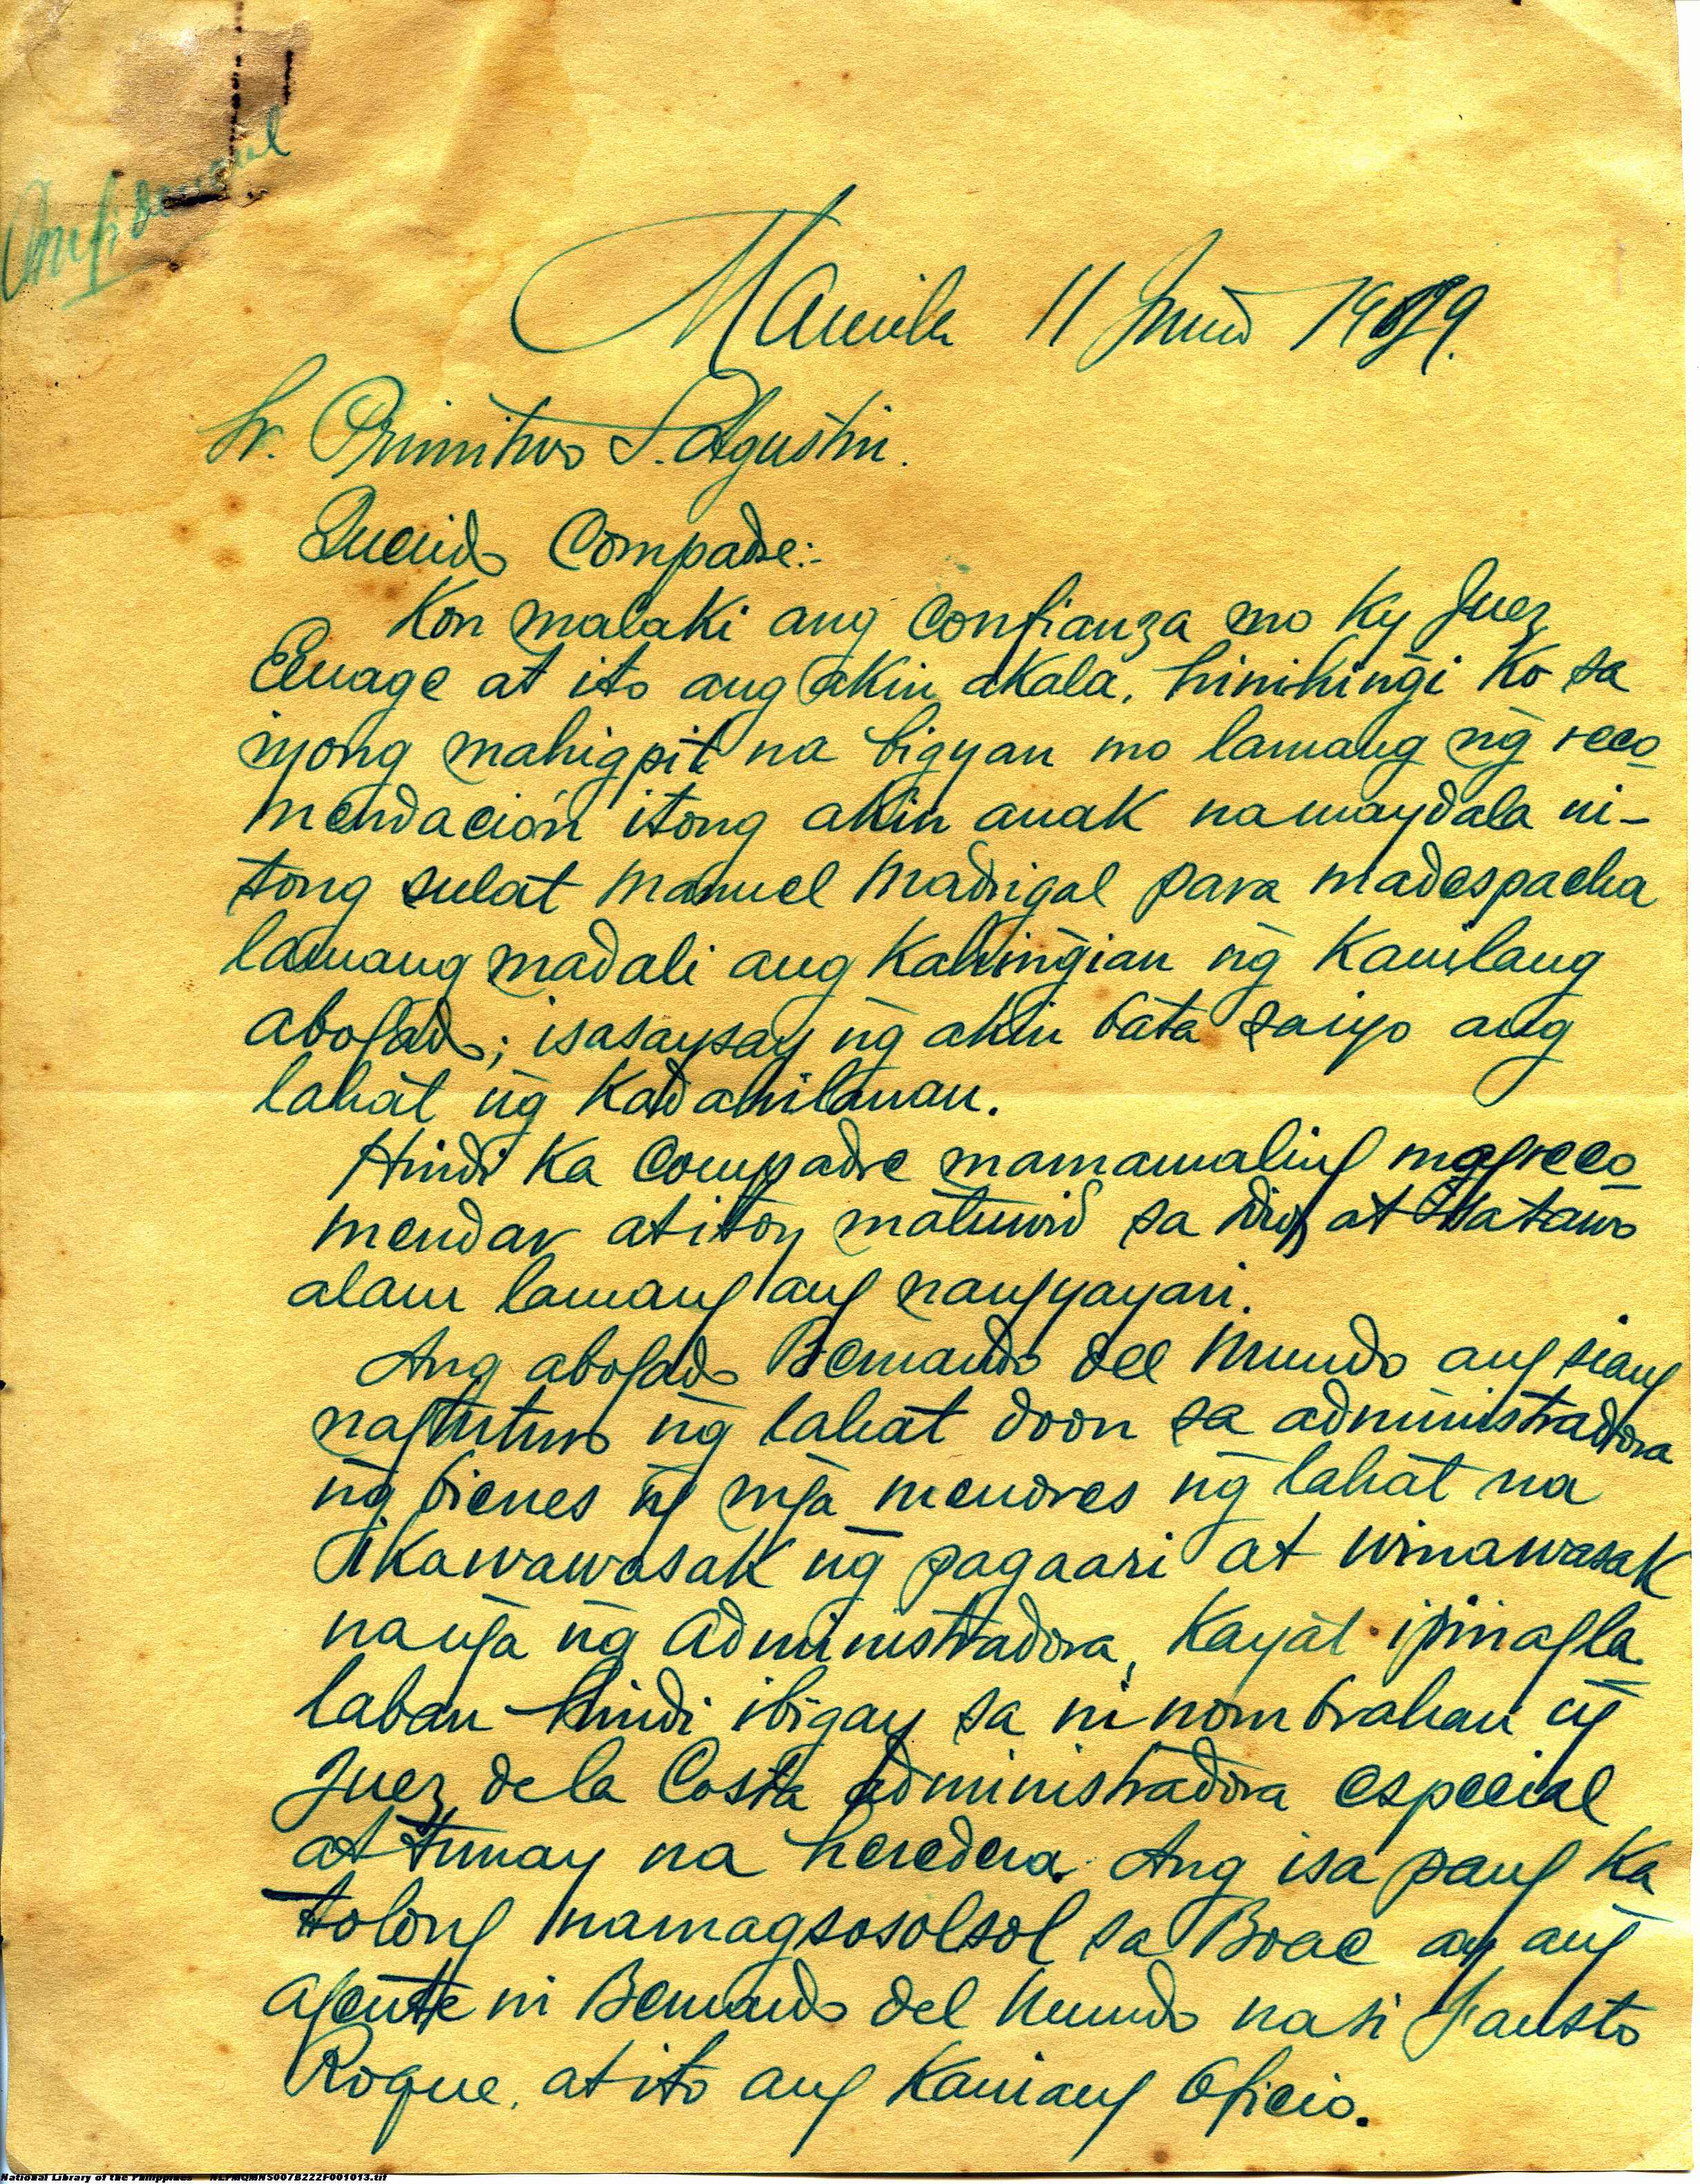 Confidencial
Manila 11 Junio 1929.
Sr. Primitivo S. Agustin.
Querido Compadre:-
Kon malaki ang confianza mo ky Juez
Enage at ito ang akin akala, hinihingi ko sa
iyong mahigpit na bigyan mo lamang ng̃ reco
mendación itong akin anak na maydala ni-
tong sulat Manuel Madrigal para madespacha
lamang madali ang kahing̃ian ng̃ kanilang
abogado; isasaysay ng̃ akin bata saiyo ang
lahat ng̃ kadahilanan.
Hindi ka compadre mamamaling magreco
mendar at itoy matuwid sa Dios at sa tawo
alam lamang ang nangyayari.
Ang abogado Bernardo del Mundo ang siang
nagtuturo ng̃ lahat doon sa administradora
ng̃ bienes ng̃ mg̃a menores ng̃ lahat na
ikawawasak ng̃ pagaari at winawasak
na ng̃a ng̃ administradora, kayat ipinagla
laban hindi ibigay sa ninombrahan ng̃
Juez de la Costa administradora especial
at tunay na heredera. Ang isa pang ka
tolong namagsosolsol sa Boac ay ang
agente ni Bernardo del Mundo na si Fausto
Roque, at ito ang kaniang oficio.
National Library of the Philippines NLPMQMNS007B222F001013.tif